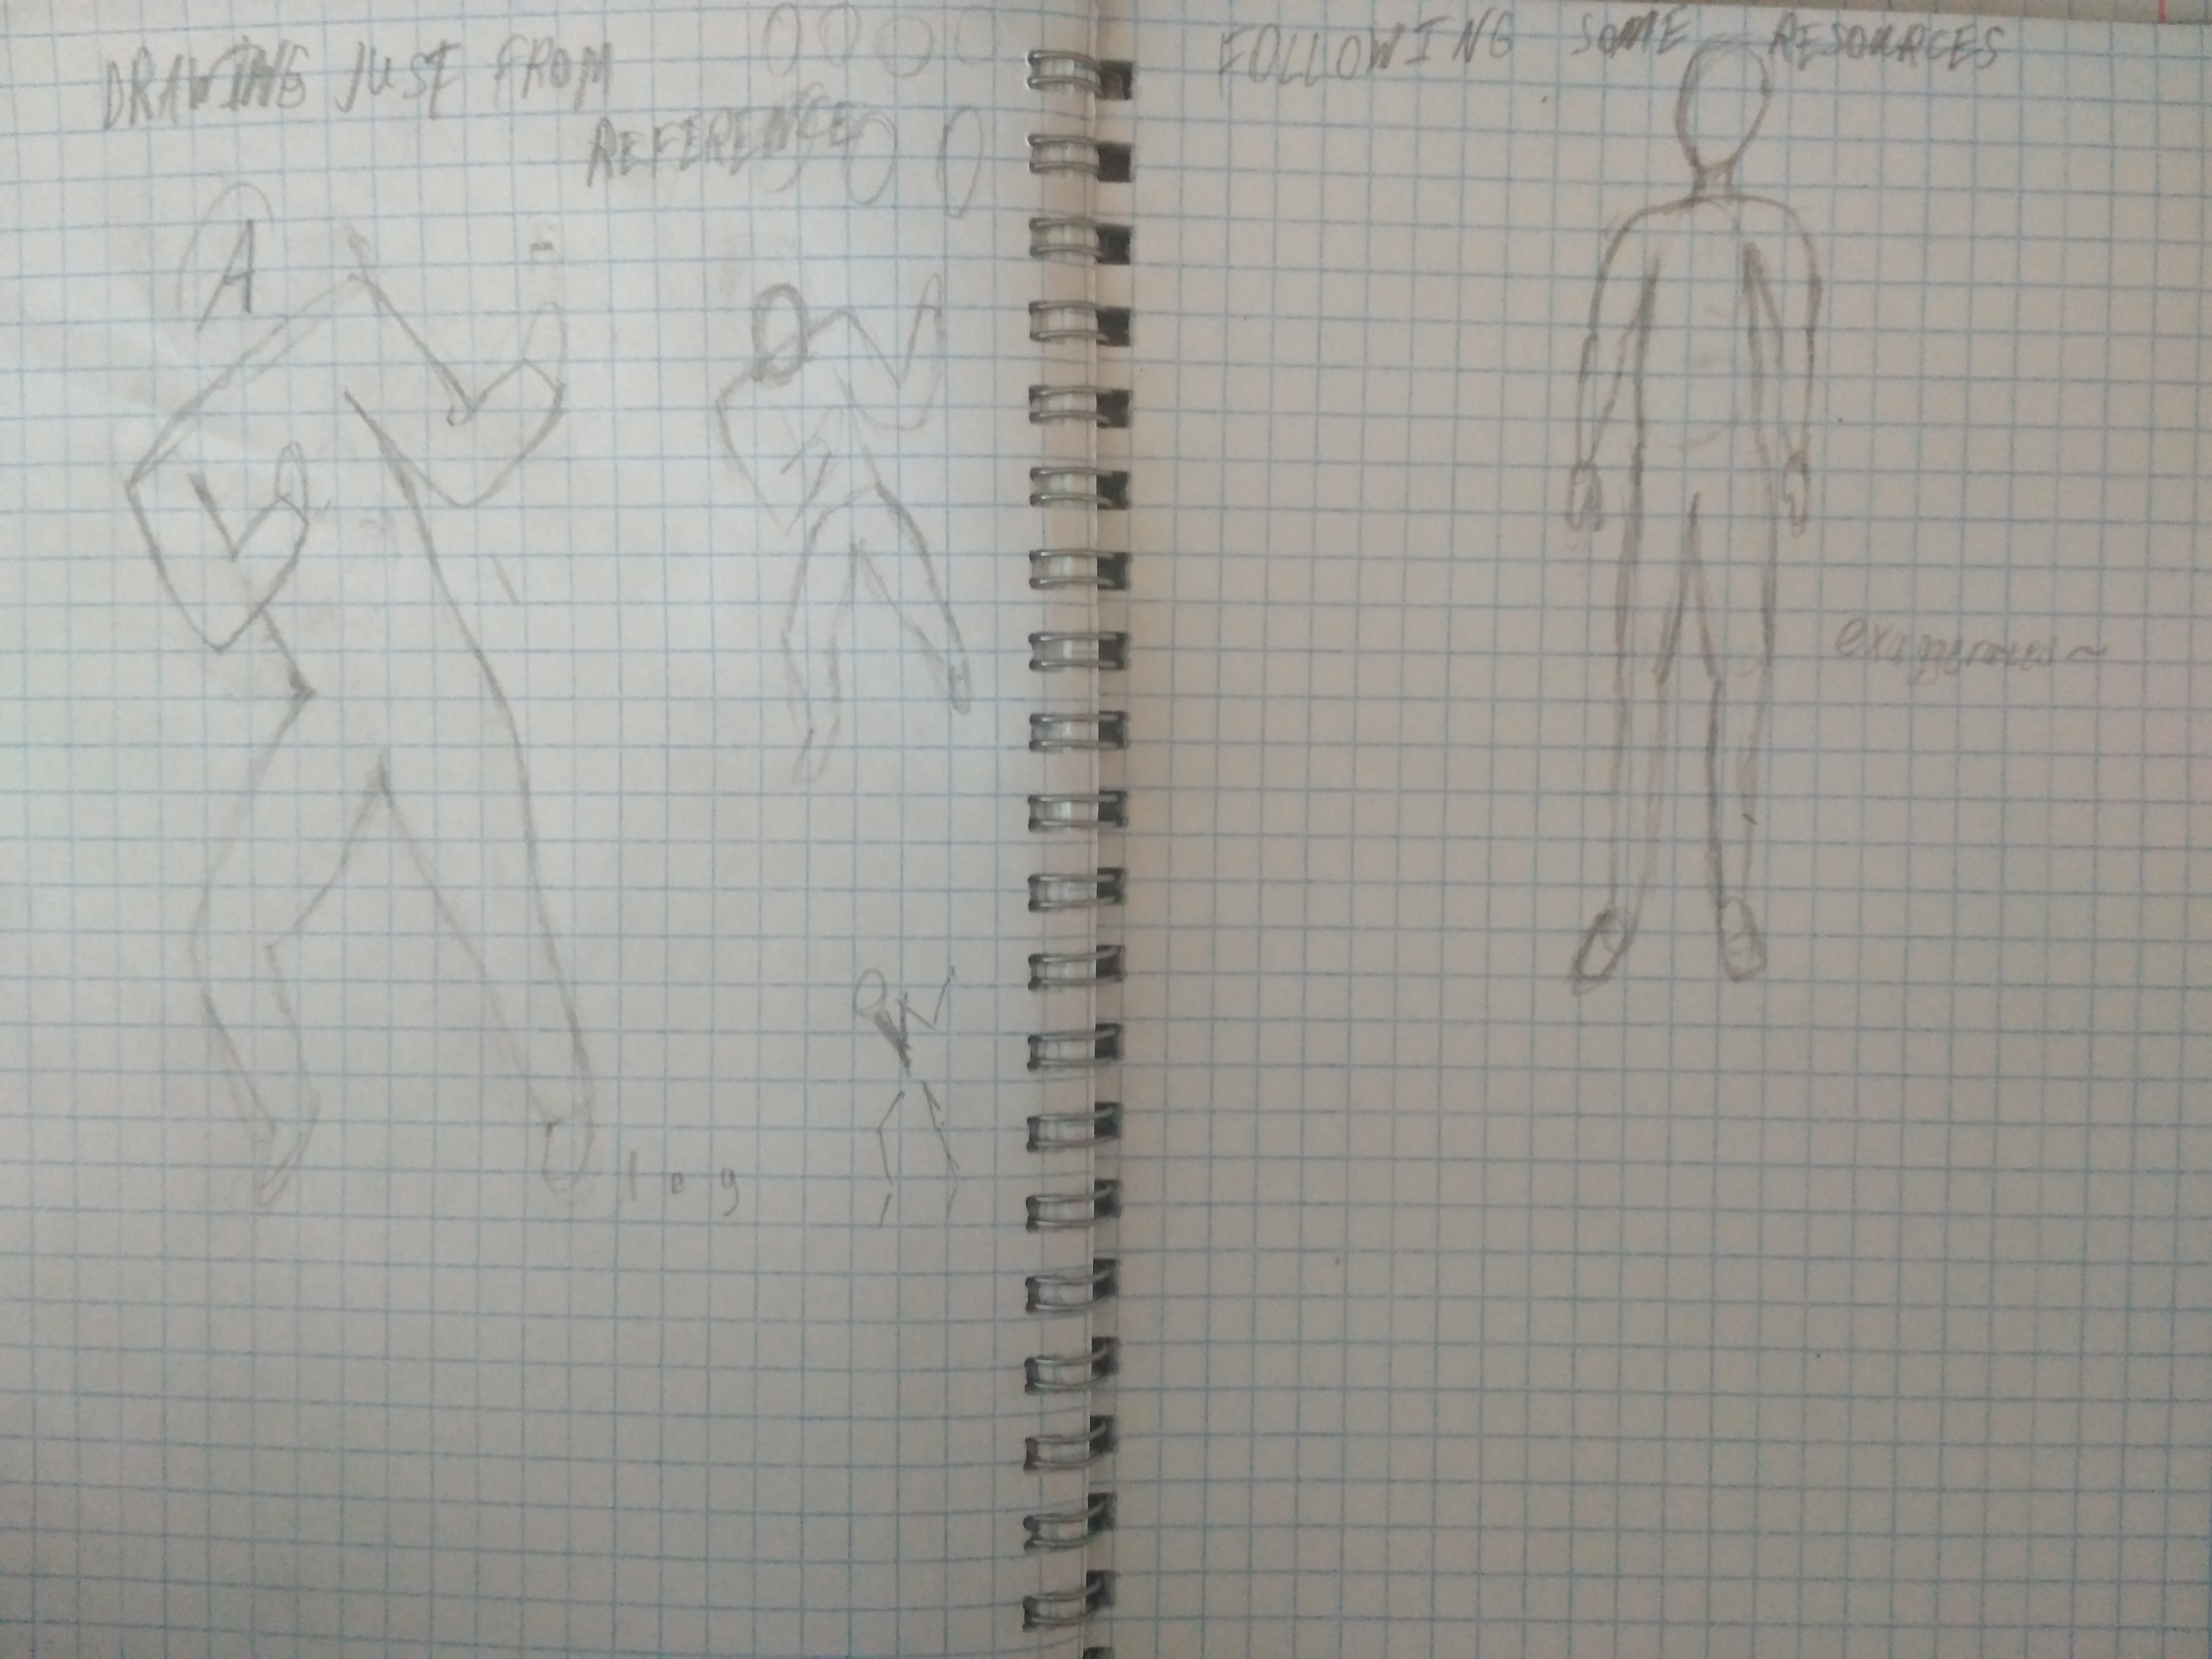 DRAWING JUST FROM
REFERENCE
A
leg
FOLLOWING SOME RESOURCES